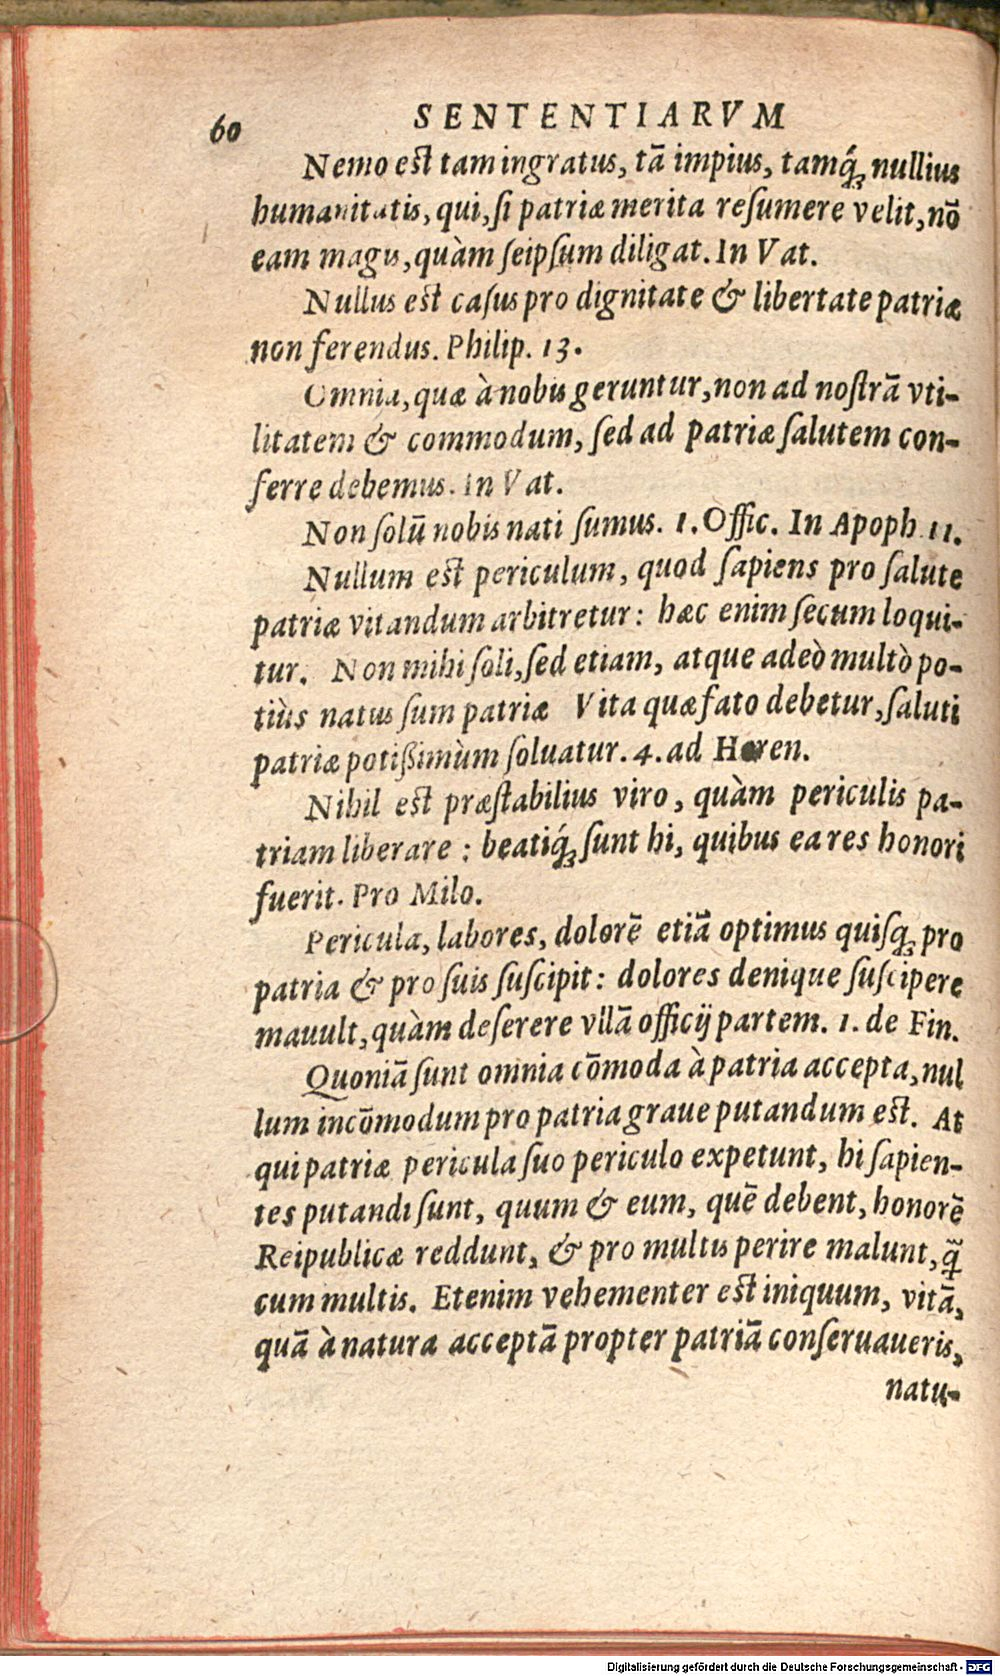 60 SENTENTIARVM
Nemo est tam ingratus, tā impius, tamq́; nullius
humanitatis, qui, si patriæ merita resumere velit, nō
eam magis, quàm seipsum diligat. In Vat.
Nullus est casus pro dignitate & libertate patriæ
non ferendus. Philip. 13.
Omnia, quæ à nobis geruntur, non ad nostrā vti-
litatem & commodum, sed ad patriæ salutem con-
ferre debemus. In Vat.
Non solū nobis nati sumus. 1. Offic. In Apoph 11.
Nullum est periculum, quod sapiens pro salute
patriæ vitandum arbitretur: hæc enim secum loqui-
tur. Non mihi soli, sed etiam, atque adeò multò po-
tiùs natus sum patriæ Vita quæ fato debetur, saluti
patriæ potißimùm soluatur. 4. ad Heren.
Nihil est præstabilius viro, quàm periculis pa-
triam liberare: beatiq́; sunt hi, quibus ea res honori
fuerit. Pro Milo.
Pericula, labores, dolorē etiā optimus quisq; pro
patria & pro suis suscipit: dolores denique suscipere
mauult, quàm deserere vllā officij partem. 1. de Fin.
Quoniā sunt omnia cōmoda à patria accepta, nul
lum incōmodum pro patria graue putandum est. At
qui patriæ pericula suo periculo expetunt, hi sapien-
tes putandi sunt, quum & eum, quē debent, honorē
Reipublicæ reddunt, & pro multis perire malunt, q̃
cum multis. Etenim vehementer est iniquum, vitā,
quā à natura acceptā propter patriā conseruaueris,
natu-
Digitalisierung gefördert durch die Deutsche Forschungsgemeinschaft - DFG